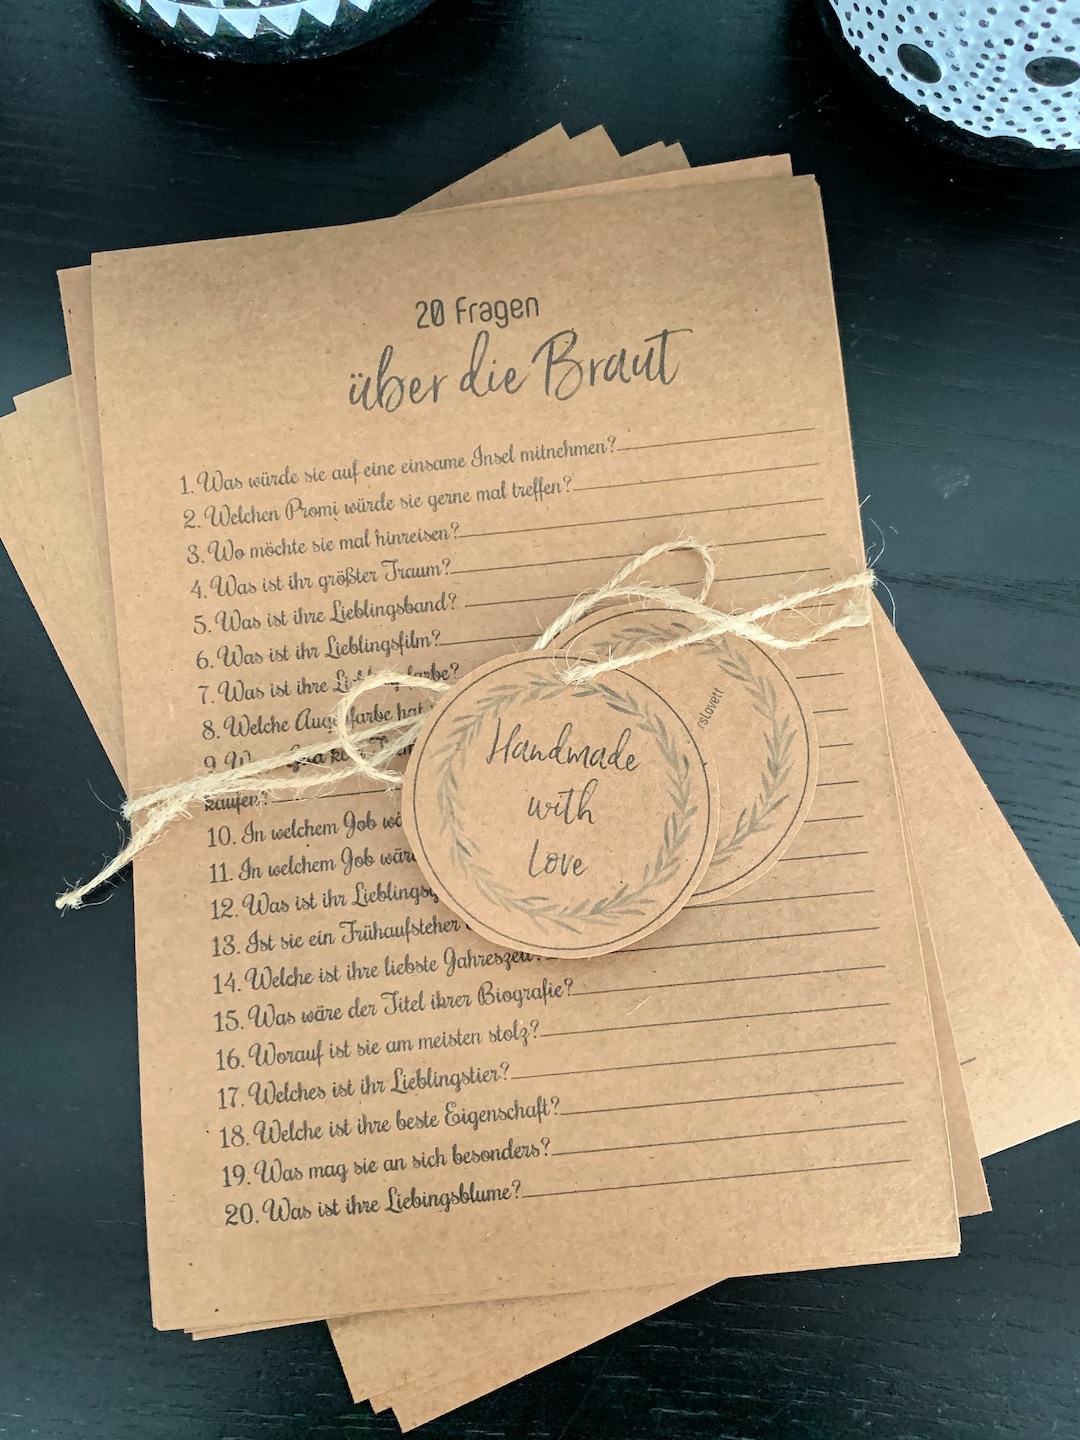 20 Fragen
über die Braut
1. Was würde sie auf eine einsame Insel mitnehmen?
2. Welchen Promi würde sie gerne mal treffen?
3. Wo möchte sie mal hinreisen?
4. Was ist ihr größter Traum?
5. Was ist ihre Lieblingsband?
6. Was ist ihr Lieblingsfilm?
7. Was ist ihre
8. Welche Augenfarbe hat
9.
kaufen?
10. In welchem Job
11. In welchem Job wäre
12. Was ist ihr
13. Ist sie ein Frühaufsteher
14. Welche ist ihre liebste Jahreszeit?
15. Was wäre der Titel ihrer Biografie?
16. Worauf ist sie am meisten stolz?
17. Welches ist ihr Lieblingstier?
18. Welche ist ihre beste Eigenschaft?
19. Was mag sie an sich besonders?
20. Was ist ihre Liebingsblume?
Handmade
with
Love